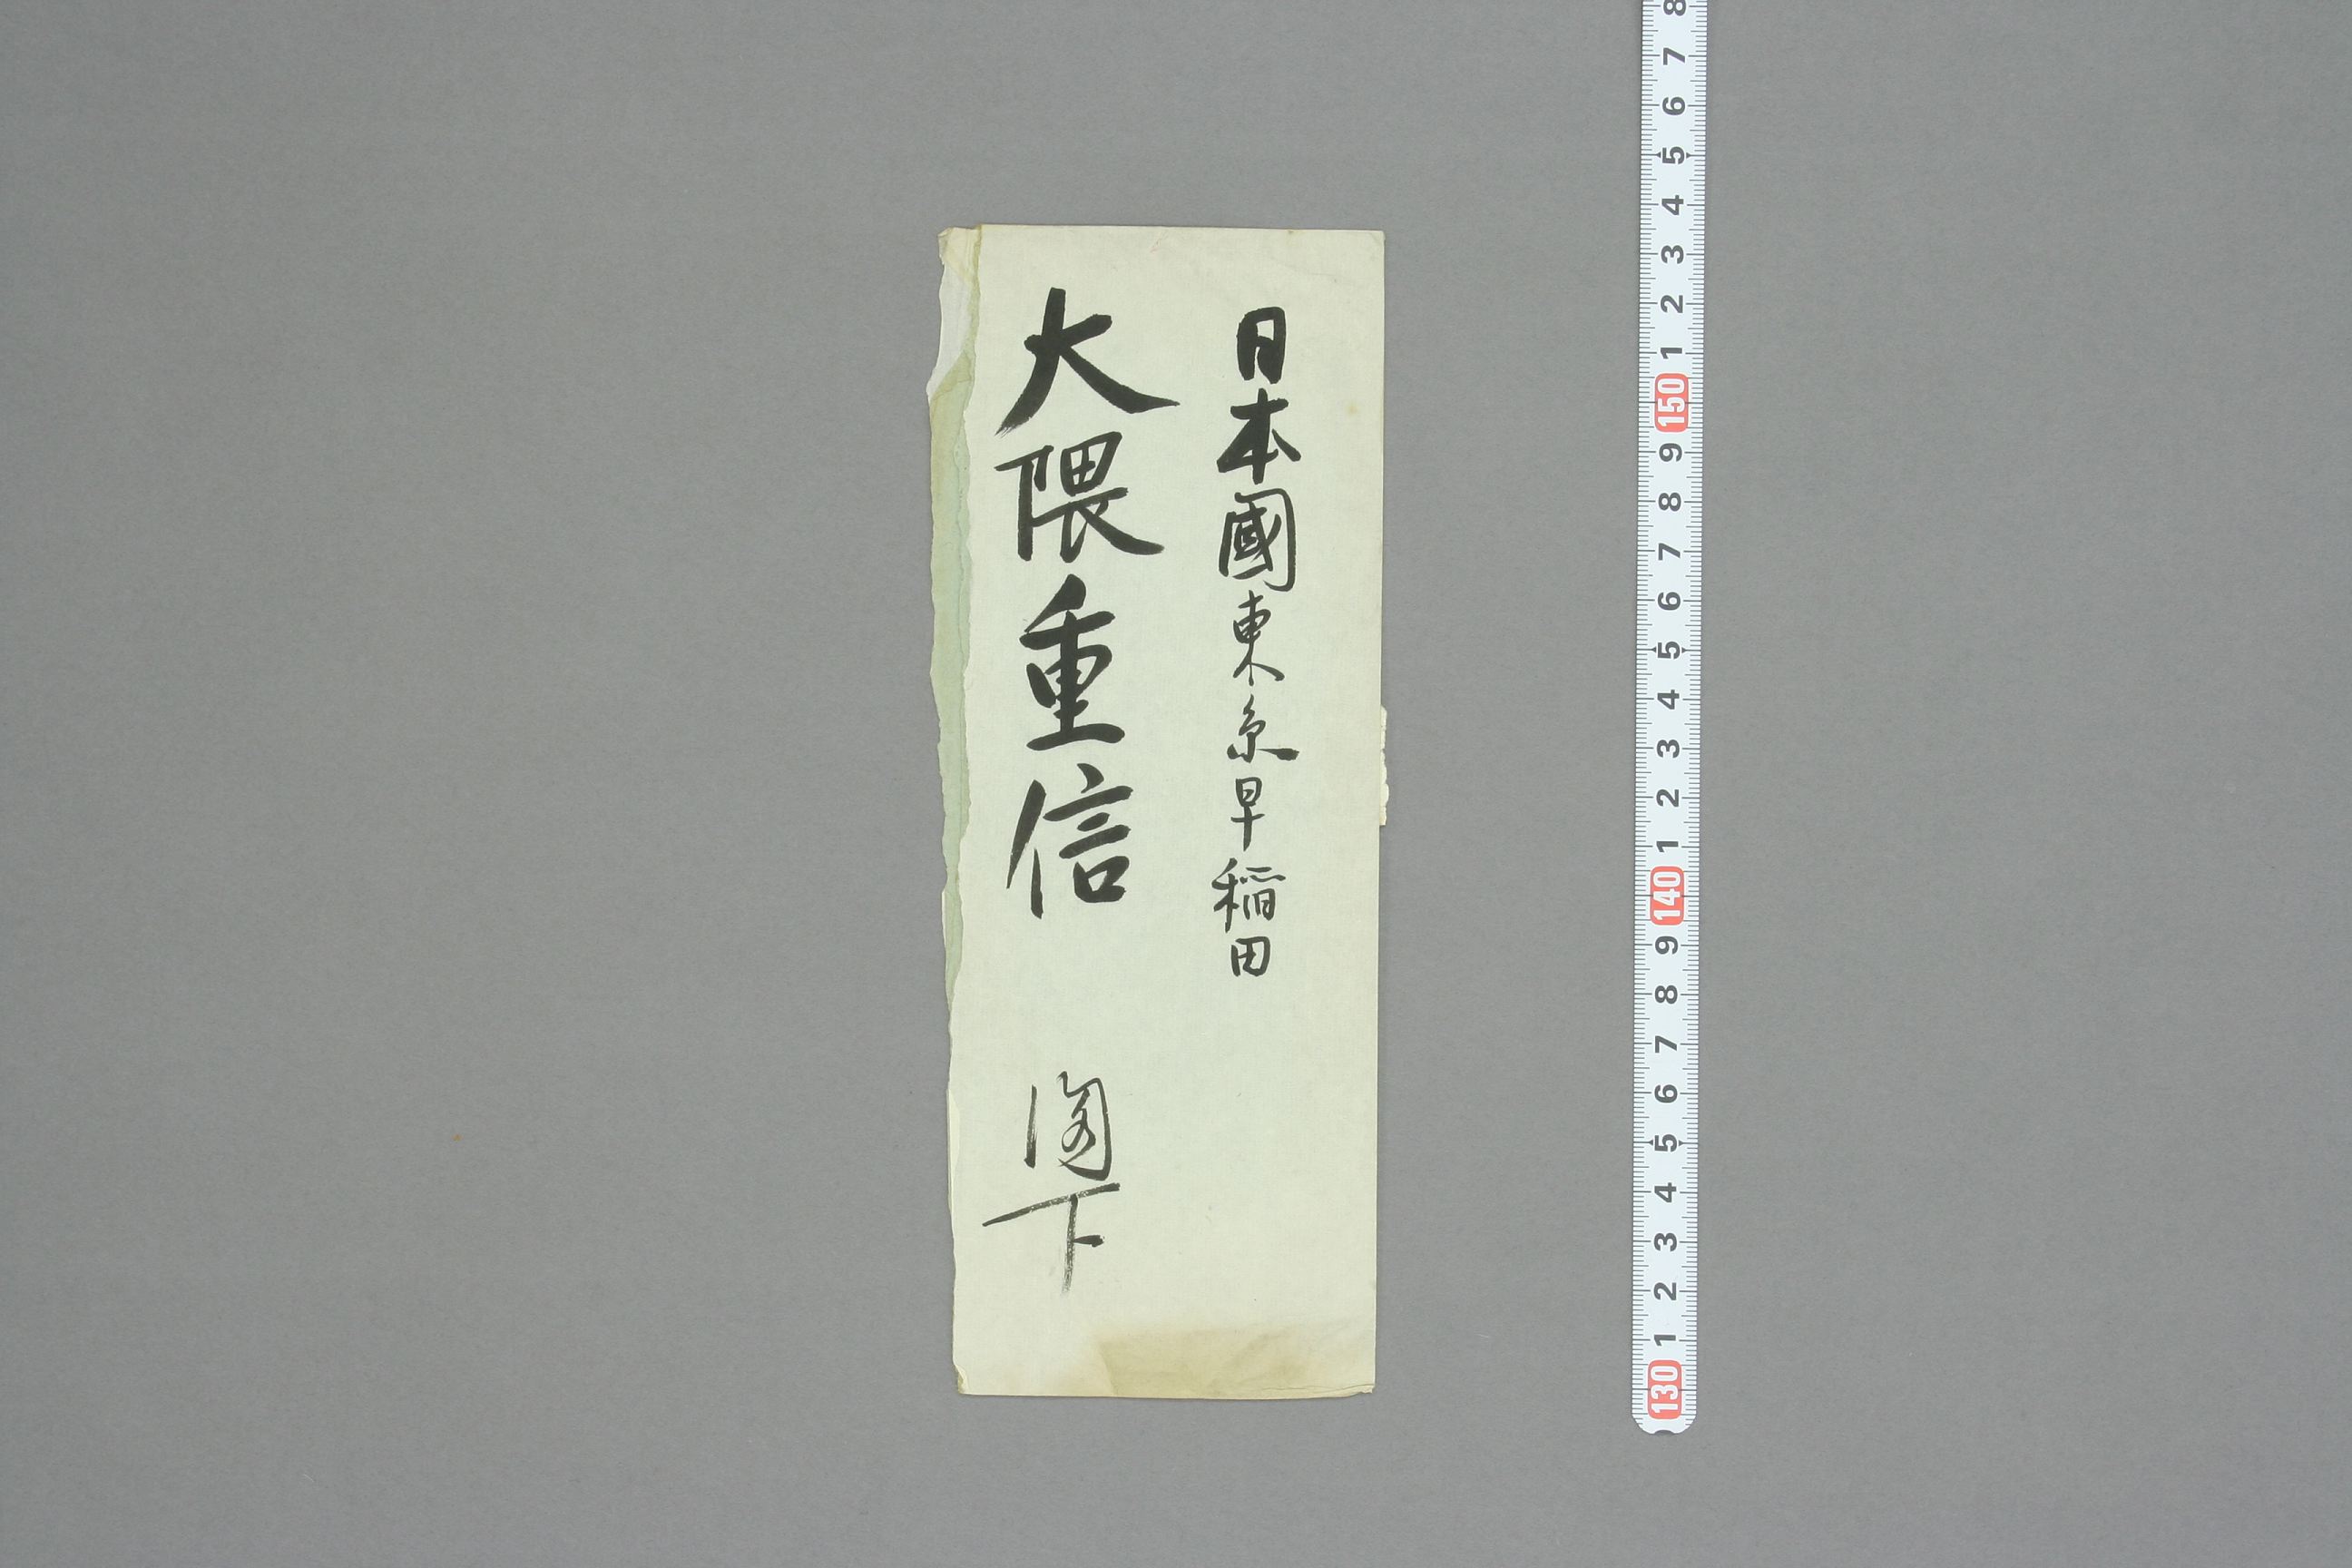 日本國東京早稲田
大隈重信 閣下
8
7
6
5
4
3
2
1
150
9
8
7
6
5
4
3
2
1
140
9
8
7
6
5
4
3
2
1
130